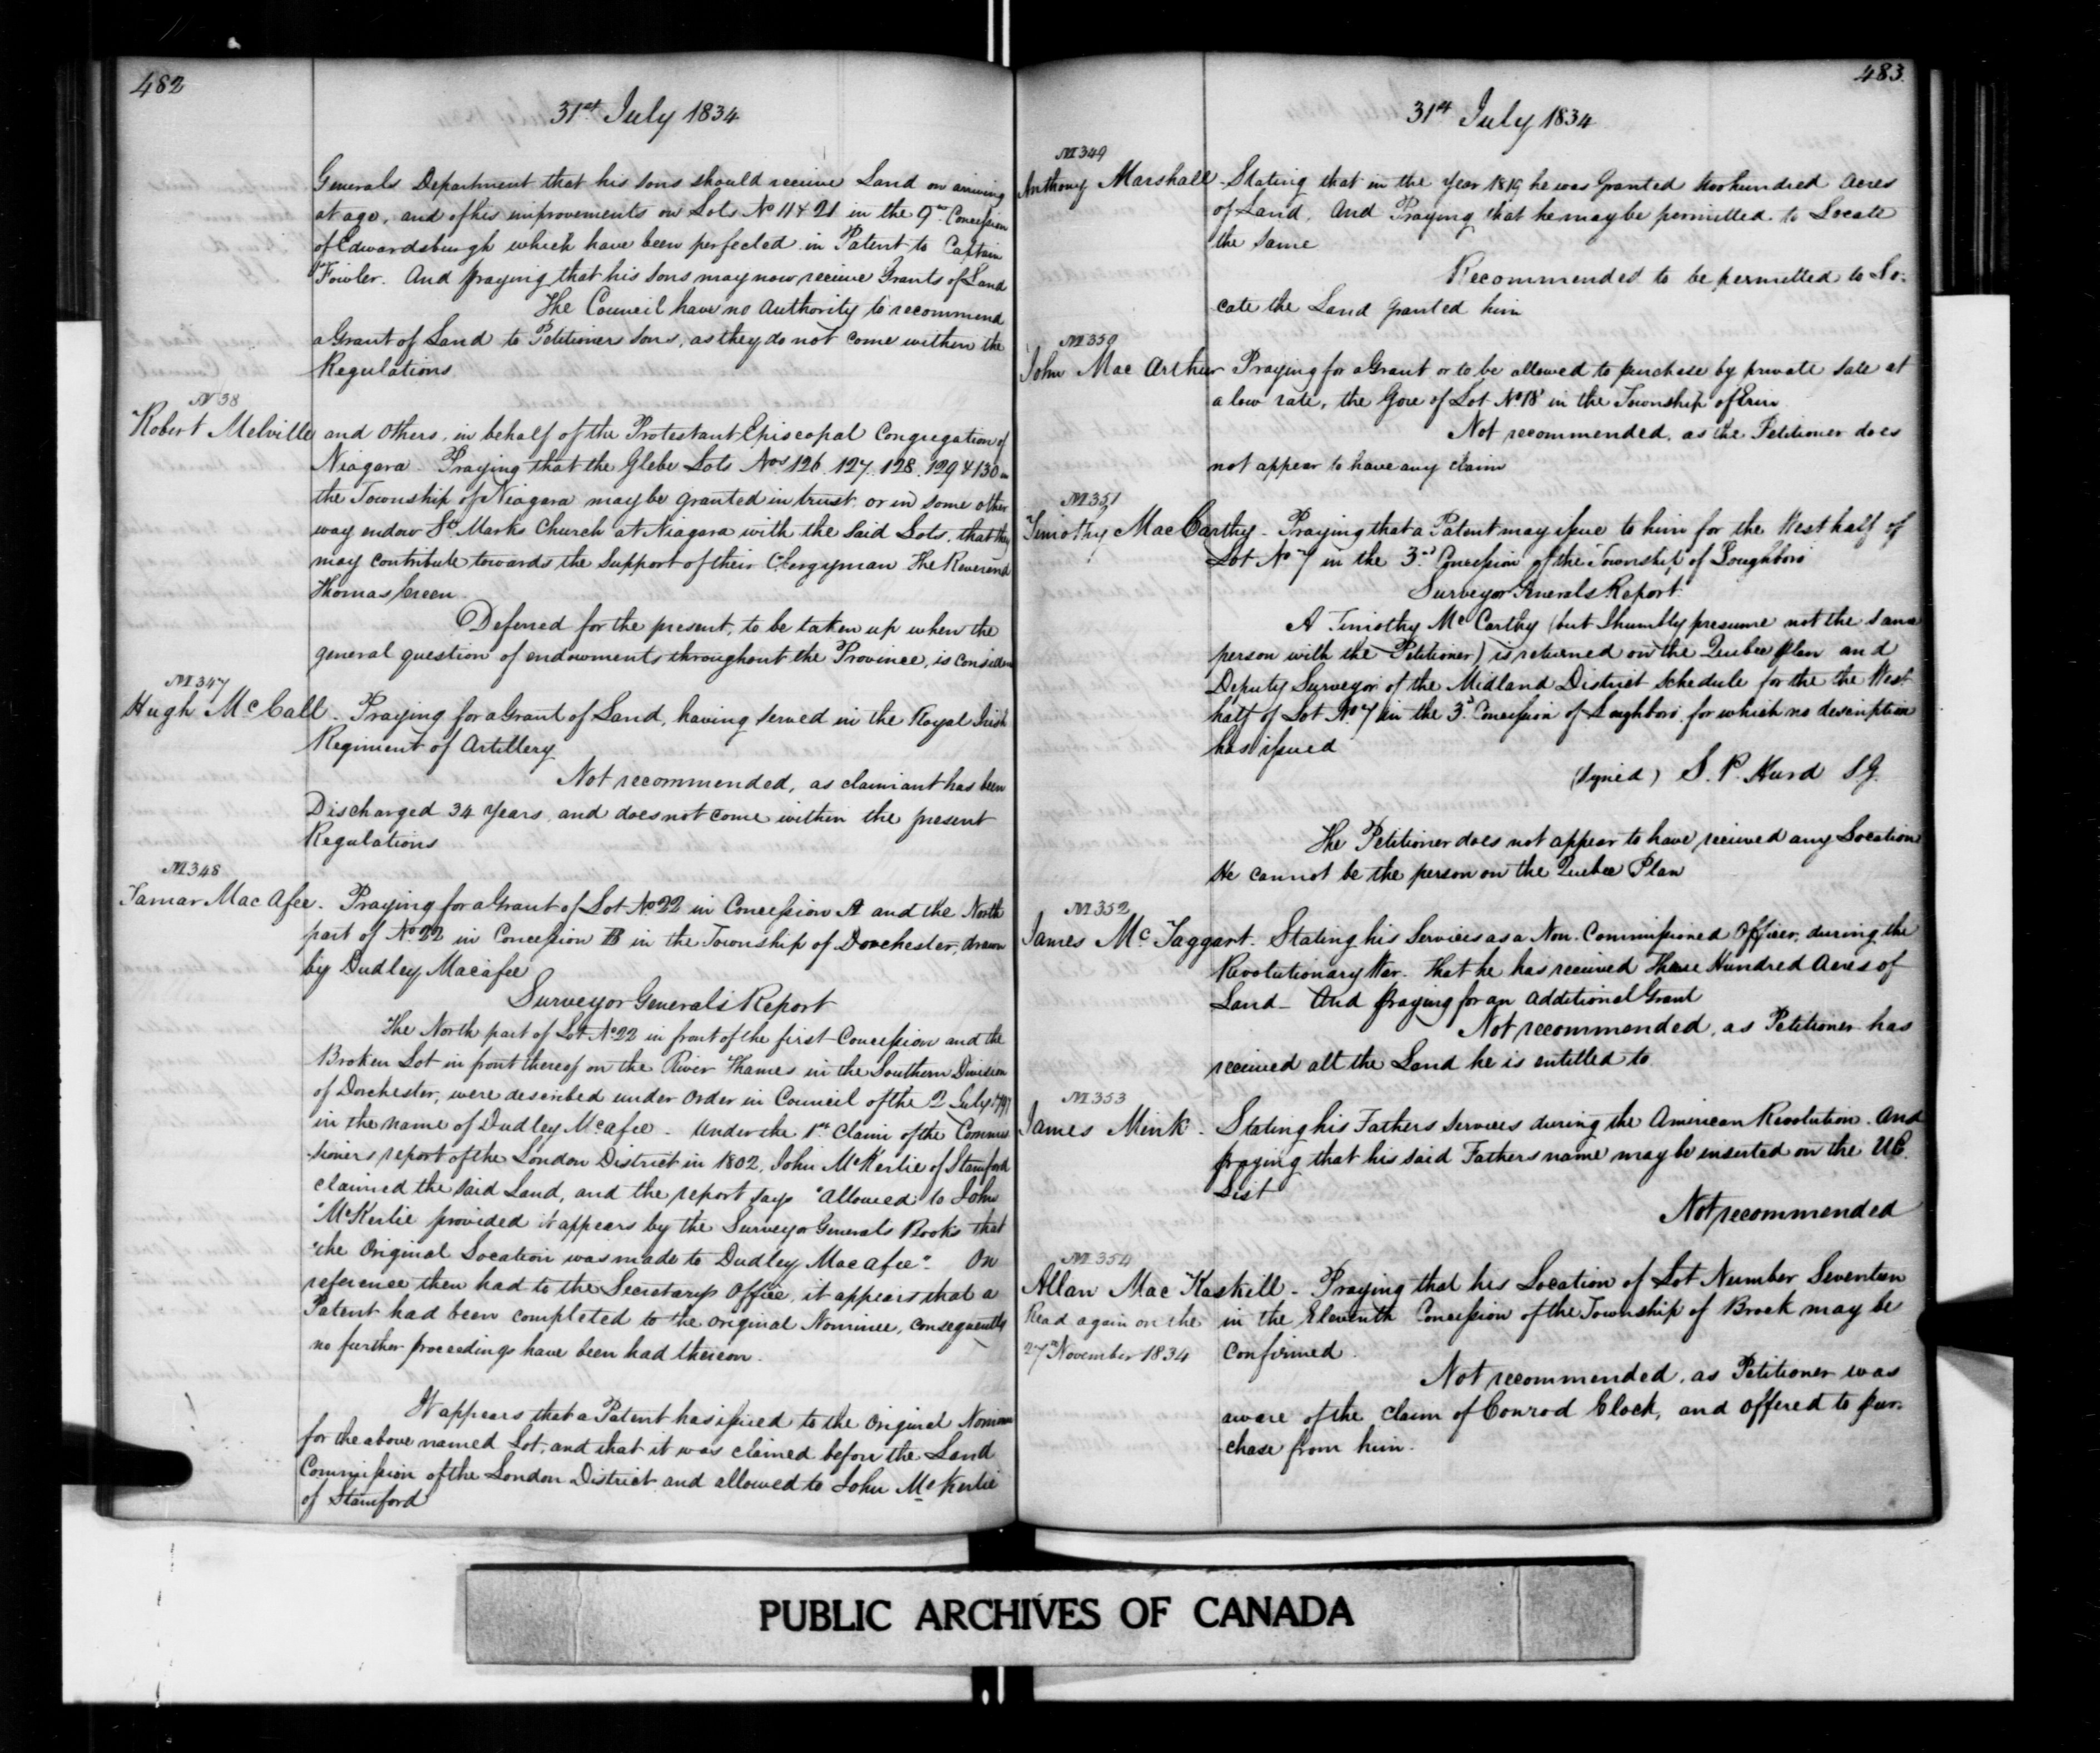 482
31st July 1834
Generals Department that his sons should receive Land on arriving
at age, and of his improvements on Lots No 11 & 21 in the 9th Concession
of Edwardsburgh which have been perfected in Patent to Captain
Fowler. And praying that his sons may now receive Grants of Land
The Council have no Authority to recommend
a Grant of Land to Petitioners sons, as they do not come within the
Regulations
N 38
Robert Melville and others, in behalf of the Protestant Episcopal Congregation of
Niagara. Praying that the Glebe Lots Nos 126. 127. 128. 129 & 130 in
the Township of Niagara may be granted in trust or in some other
way endow St. Marks Church at Niagara with the said Lots, that they
may contribute towards the support of their Clergyman The Reverend
Thomas Creen.
Deferred for the present, to be taken up when the
general question of endowments throughout the Province, is consider
M 347
Hugh Mc Call. Praying for a Grant of Land, having served in the Royal Irish
Regiment of Artillery
Not recommended, as claimant has been
Discharged 34 years, and does not come within the present
Regulations
M 348
Tamar Mac Afee. Praying for a Grant of Lot No 22 in Concession A and the North
part of No 22 in Concession B in the Township of Dorchester, drawn
by Dudley Macafee
Surveyor General's Report
The North part of Lot No 22 in front of the first Concession and the
Broken Lot in front thereof on the River Thames in the Southern Division
of Dorchester, were described under order in Council of the 2 July 1797
in the name of Dudley Mcafee. Under the 1st Claim of the Commis
sioners report of the London District in 1802, John McKerlie of Stamford
claimed the said Land, and the report says "allowed to John
"McKerlie provided it appears by the Surveyor Generals Books that
"the Original Location was made to Dudley Mac afee". On
reference then had to the Secretarys Office, it appears that a
Patent had been completed to the original Nominee, consequently
no further proceedings have been had thereon.
It appears that a Patent has issued to the Original Nominee
for the above named Lot, and that it was claimed before the Land
Commission of the London District and allowed to John Mc Kerlie
of Stamford
483.
31st July 1834
M 349
Anthony Marshall - Stating that in the year 1819 he was Granted two hundred Acres
of Land. And Praying that he may be permitted to Locate
the same
Recommended to be permitted to Lo-
cate the Land granted him
M 350
John Mac Arthur Praying for a Grant or to be allowed to purchase by private sale at
a low rate, the Gore of Lot No 18 in the Township of Erin
Not recommended, as the Petitioner does
not appear to have any claim
M 351
Timothy Mac Carthy - Praying that a Patent may issue to him for the West half of
Lot No 7 in the 3rd Concession of the Township of Loughboro
Surveyor Generals Report
A Timothy Mc Carthy (but I humbly presume not the same
person with the Petitioner) is returned on the Quebec plan and
Deputy Surveyor of the Midland District Schedule for the the West
half of Lot No 7 in the 3d Concession of Loughboro for which no description
has issued
(signed) S. P. Hurd S.G.
The Petitioner does not appear to have received any Location
He cannot be the person on the Quebec Plan
M 352
James Mc Taggart. Stating his Services as a Non. Commissioned Officer, during the
Revolutionary War. That he has received Three Hundred Acres of
Land - And praying for an additional Grant
Not recommended, as Petitioner has
received all the Land he is entitled to.
M 353
James Mink. Stating his Fathers Services during the American Revolution. And
praying that his said Fathers name may be inserted on the U.E.
List
Not recommended
M 354
Allan Mac Kaskill - Praying that his Location of Lot Number Seventeen
Read again on the in the Eleventh Concession of the Township of Brock may be
27th November 1834 confirmed.
Not recommended, as Petitioner was
aware of the claim of Conrod Clock, and offered to pur-
chase from him.
PUBLIC ARCHIVES OF CANADA